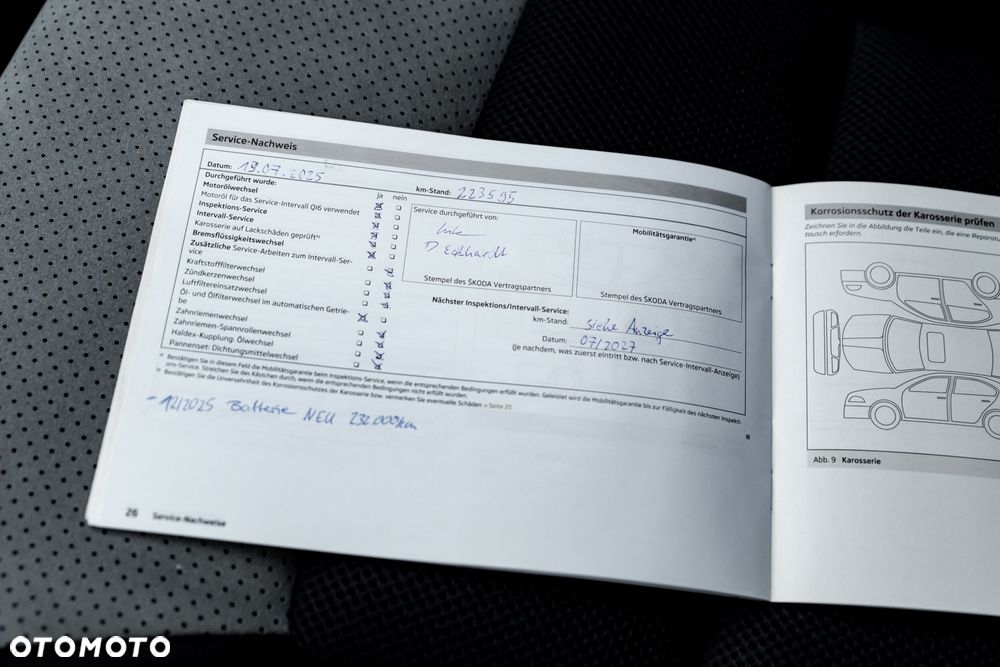 Service-Nachweis
Datum: 19.07.2025
km-Stand: 223595
Durchgeführt wurde:
ja nein
Motorölwechsel
Motoröl für das Service-Intervall QI6 verwendet
Inspektions-Service
Intervall-Service
Karosserie auf Lackschäden geprüft
Bremsflüssigkeitswechsel
Zusätzliche Service-Arbeiten zum Intervall-Ser-
vice
Kraftstofffilterwechsel
Zündkerzenwechsel
Luftfiltereinsatzwechsel
Öl- und Ölfilterwechsel im automatischen Getrie-
be
Zahnriemenwechsel
Zahnriemen-Spannrollenwechsel
Haldex-Kupplung: Ölwechsel
Pannenset: Dichtungsmittelwechsel
Service durchgeführt von:
D Eckhardt
Stempel des ŠKODA Vertragspartners
Mobilitätsgarantie
Stempel des ŠKODA Vertragspartners
Nächster Inspektions/Intervall-Service:
km-Stand: siehe Anzeige
Datum: 07/2027
(je nachdem, was zuerst eintritt bzw. nach Service-Intervall-Anzeige)
Bestätigen Sie in diesem Feld die Mobilitätsgarantie beim Inspektions-Service, wenn die entsprechenden Bedingungen erfüllt wurden. Geleistet wird die Mobilitätsgarantie bis zur Fälligkeit des nächsten Inspekti-
ons-Service. Streichen Sie das Kästchen durch, wenn die entsprechenden Bedingungen nicht erfüllt wurden.
Bestätigen Sie die Unversehrtheit des Korrosionsschutzes der Karosserie bzw. vermerken Sie eventuelle Schäden » Seite 27.
- 12/2025 Batterie NEU 232.000km
26 Service-Nachweise
Korrosionsschutz der Karosserie prüfen
Zeichnen Sie in die Abbildung die Teile ein, die eine Reparatur
tausch erfordern.
Abb. 9 Karosserie
OTOMOTO